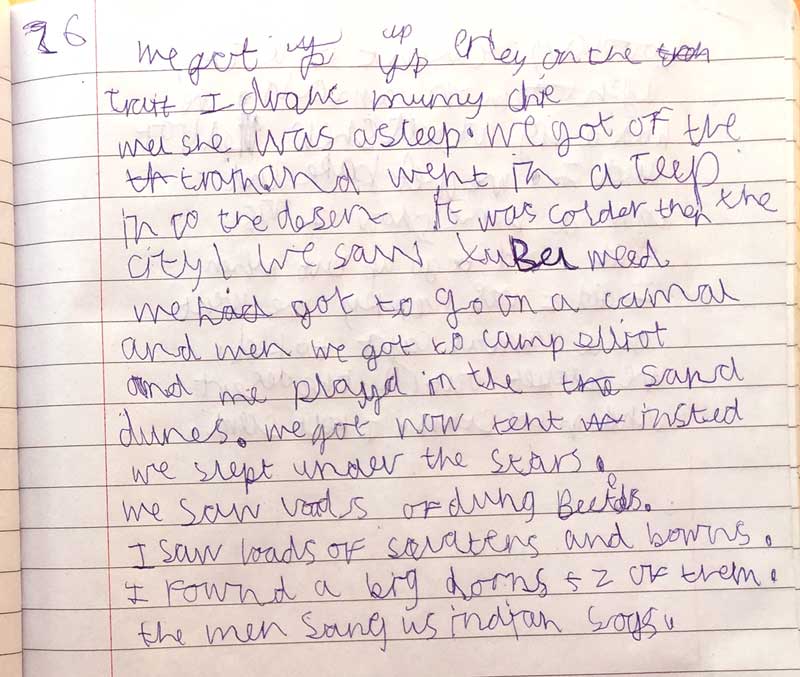 26
we got up up up erley on the train
train I drank mumy die
wel she was asleep. we got of the
train and went in a Jeep
in to the desert It was colder then the
city! we saw Xu Ber weed
we had got to go on a camal
and wen we got to camp elliot
and we playd in the the sand
dunes. we got now tent insted
we slept under the stars.
we saw loads of dung Beetels.
I saw loads of sculatens and bowns.
I fownd a big horns + 2 of them.
the men sang us indian sogs.